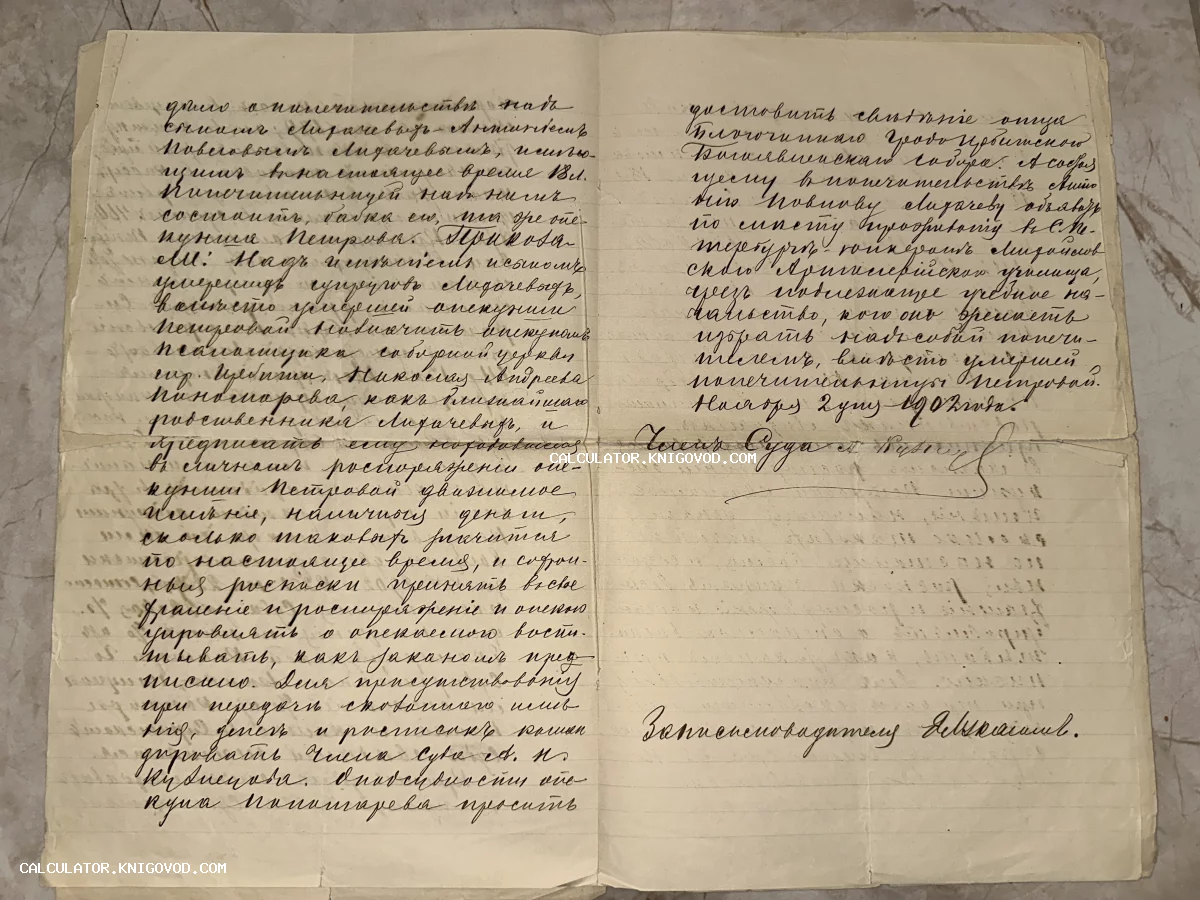 дѣло о попечительствѣ надъ
сыномъ Лидачевыхъ - Антоніемъ
Павловымъ Лидачевымъ, имѣю-
щимъ въ настоящее время 18 л.
Попечительницей надъ нимъ
состоитъ, бабка его, та же опе-
кунша Петрова. Приказа-
ли: Надъ имѣніемъ и сыномъ
умершихъ супруговъ Лидачевыхъ,
вмѣсто умершей опекунши
Петровой назначить опекуномъ
псаломщика соборной церкви
гор. Ирбити, Николая Андреева
Пономарева, какъ ближайшаго
родственника Лидачевыхъ, и
предписать ему находившіяся
въ личномъ распоряженіи опе-
кунши Петровой движимое
имѣніе, наличныя деньги,
сколько таковыхъ значится
по настоящее время, и сохран-
ныя росписки принять въ свое
храненіе и распоряженіе и опекою
управлять а опекаемого воспи-
тывать, какъ закономъ пред-
писано. Для присутствованія
при передачѣ сказаннаго имѣ-
нія, денегъ и росписокъ коман
дировать Члена Суда А. Н.
Кузнецова. О подсудности опе-
куна Пономарева просить
доставить свѣдѣніе отца
Благочиннаго Градо Ирбитскаго
Богоявленскаго собора. А состоя
щему въ попечительствѣ Анто
нію Павлову Лидачеву объявить
по мѣсту прозванію въ С. Пе-
тербургѣ - юнкеромъ Михайлов
скаго Артилерійскаго училища,
чрезъ подлежащее учебное на-
чальство, кого онъ желаетъ
избрать надъ собой попечи-
телемъ, вмѣсто умершей
попечительницы Петровой.
Ноября 2 дня 1902 года.
Членъ Суда А Кузнец
CALCULATOR.KNIGOVOD.COM
За письмоводителя
CALCULATOR.KNIGOVOD.COM